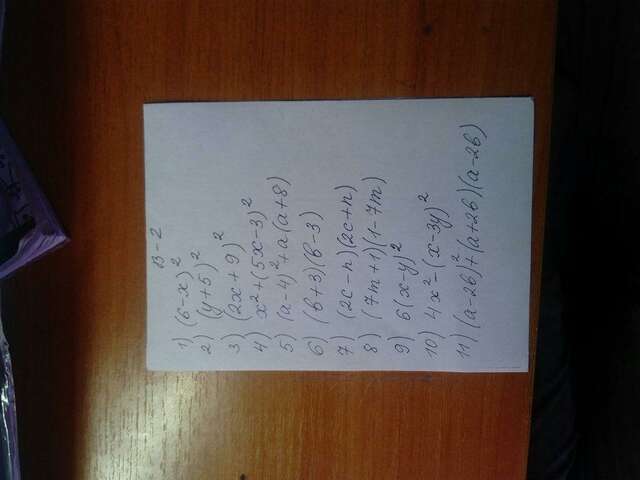 В-2
1) (6-x)²
2) (y+5)²
3) (2x+9)²
4) x²+(5x-3)²
5) (a-4)²+a(a+8)
6) (в+3)(в-3)
7) (2c-n)(2c+n)
8) (7m+1)(1-7m)
9) 6(x-y)²
10) 4x²-(x-3y)²
11) (a-2в)²+(a+2в)(a-2в)